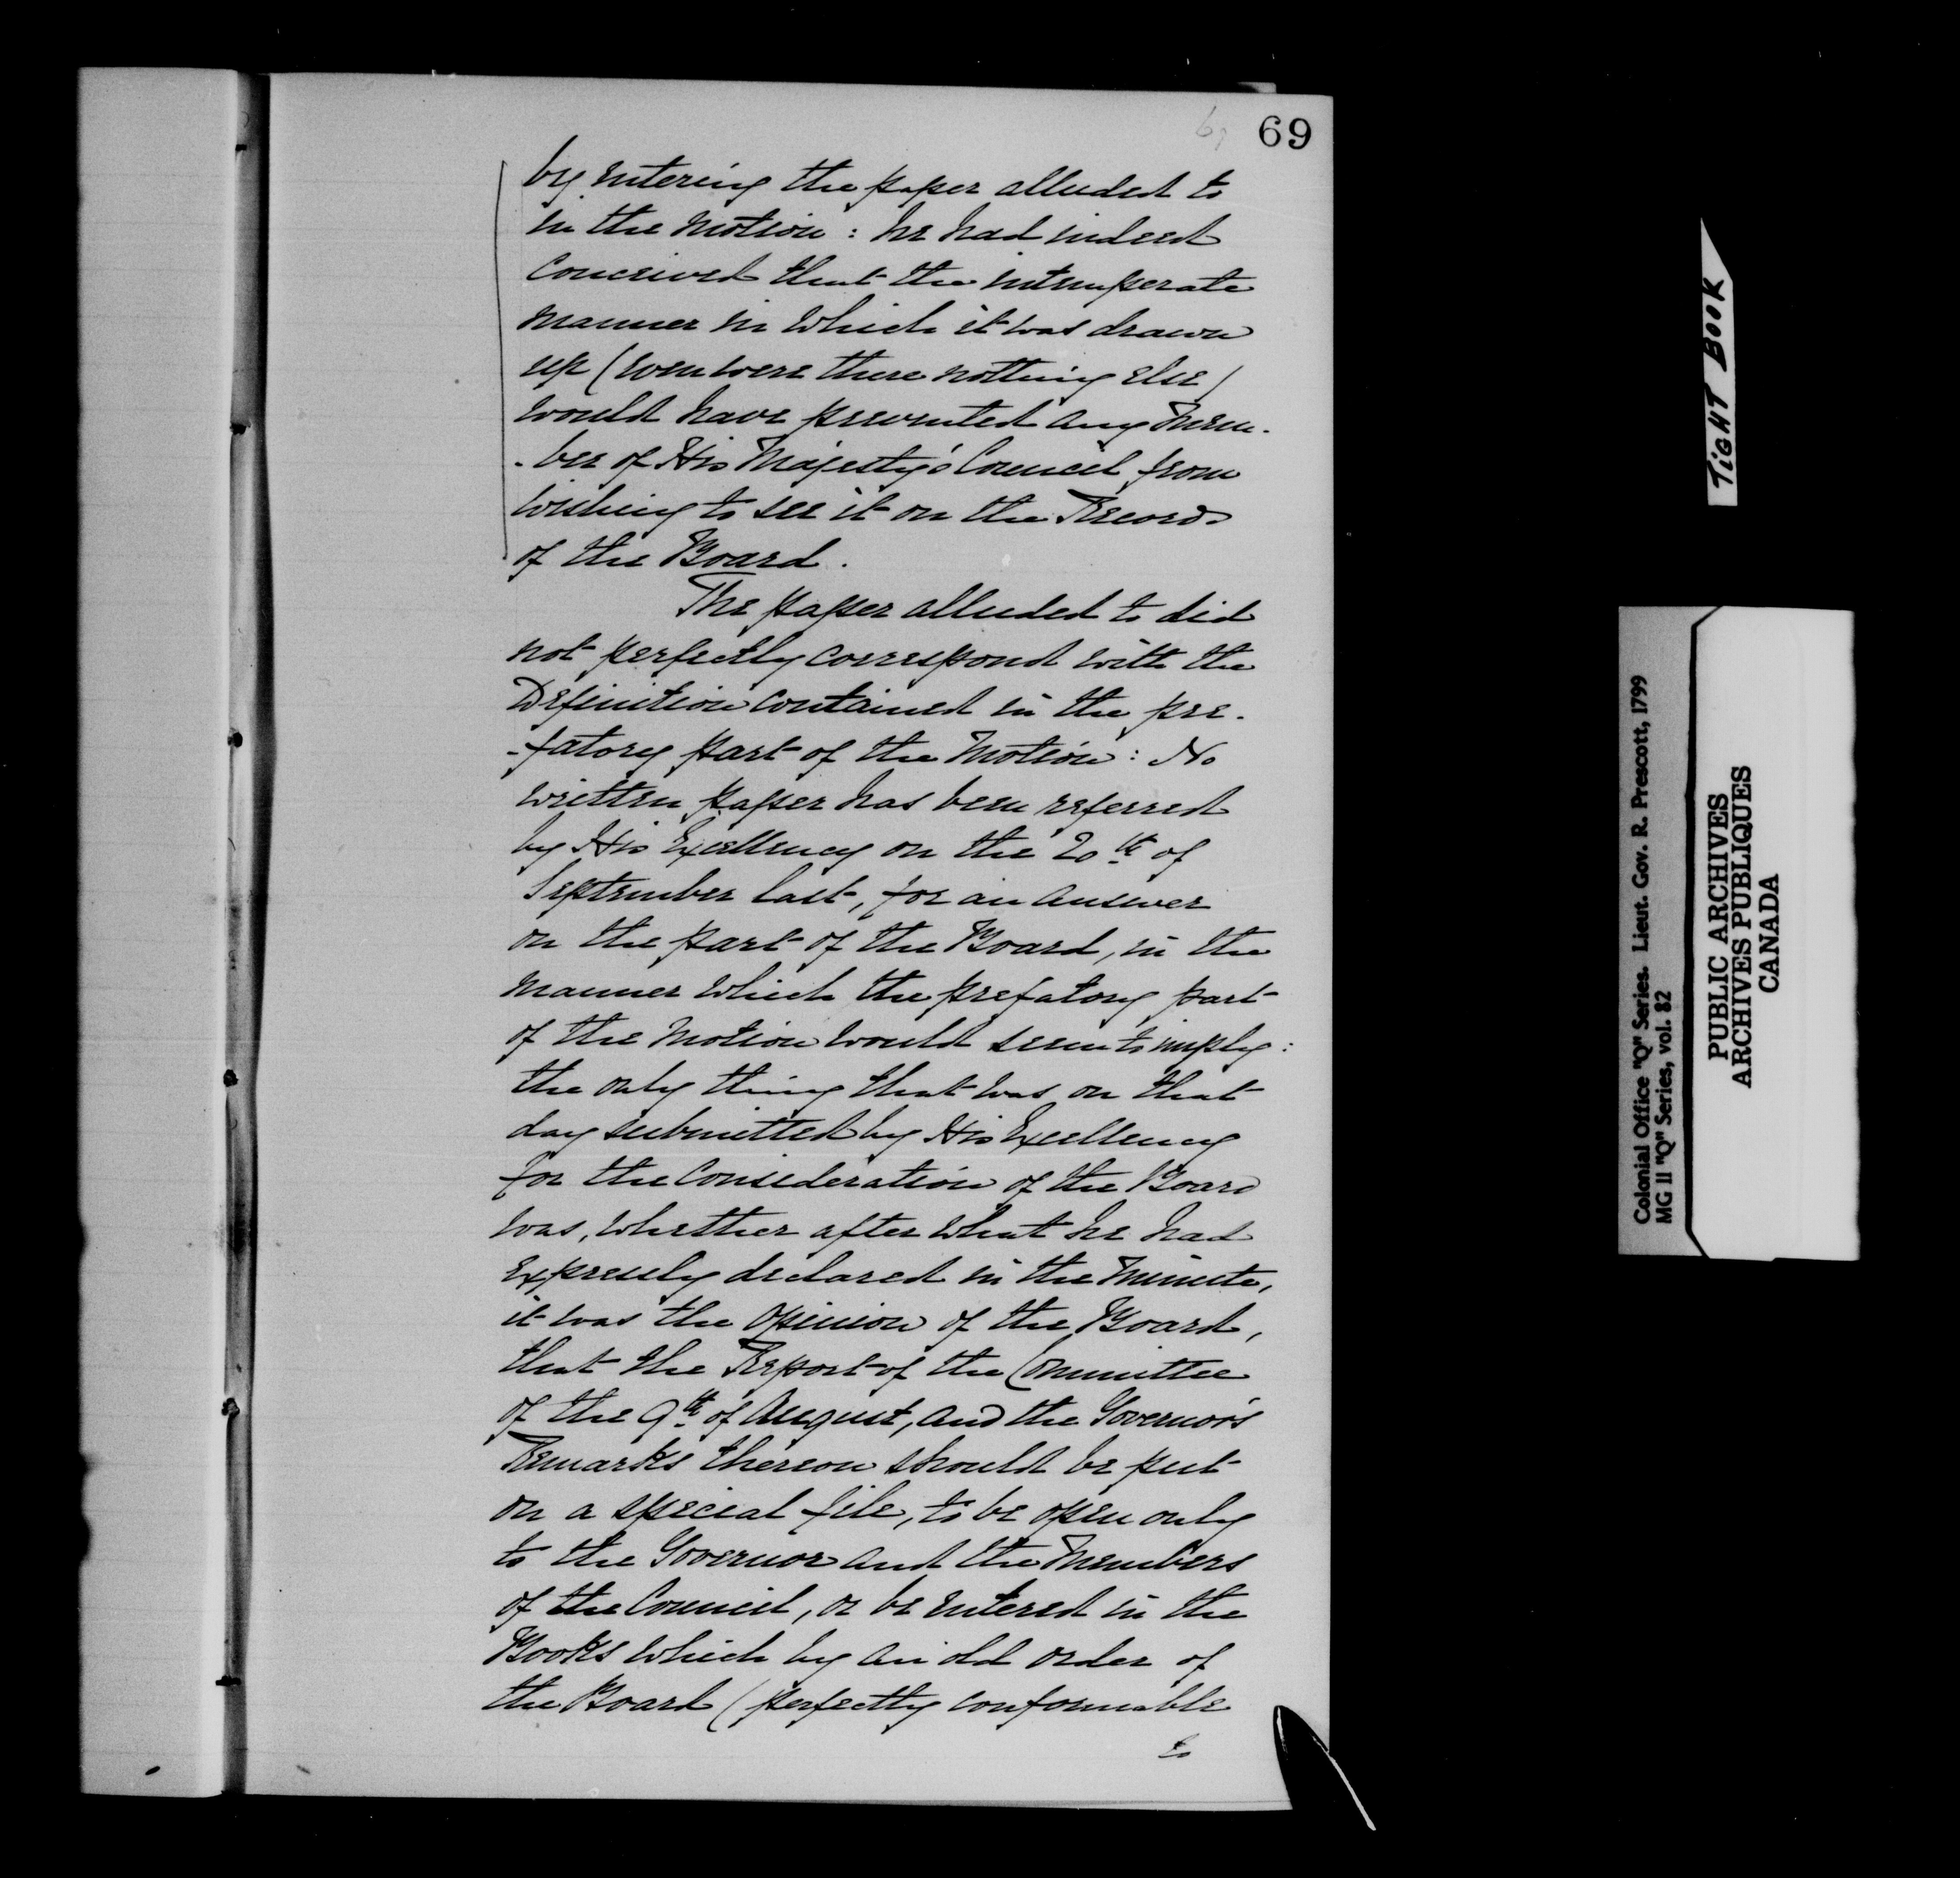 69
by entering the paper alluded to
in the Motion: he had indeed
Conceived that the intemperate
Manner in which it was drawn
up (even were there nothing else)
would have prevented any Mem-
-ber of His Majesty's Council from
wishing to see it on the Records
of the Board.
The paper alluded to did
not perfectly correspond with the
Definition contained in the pre-
-fatory part of the Motion: No
written paper has been referred
by His Excellency on the 20th of
September last, for an answer
on the part of the Board, in the
manner which the prefatory part
of the Motion would seem to imply:
the only thing that was on that
day submitted by His Excellency
for the Consideration of the Board
was, whether after what he had
expressly declared in the Minute,
it was the opinion of the Board,
that the Report of the Committee
of the 9th of August, and the Governor's
Remarks thereon should be put
on a special file, to be open only
to the Governor and the Members
of the Council, or be entered in the
Books which by an old order of
the Board (perfectly conformable
to
TIGHT BOOK
Colonial Office "Q" Series. Lieut. Gov. R. Prescott, 1799
MG 11 "Q" Series, vol. 82
PUBLIC ARCHIVES
ARCHIVES PUBLIQUES
CANADA